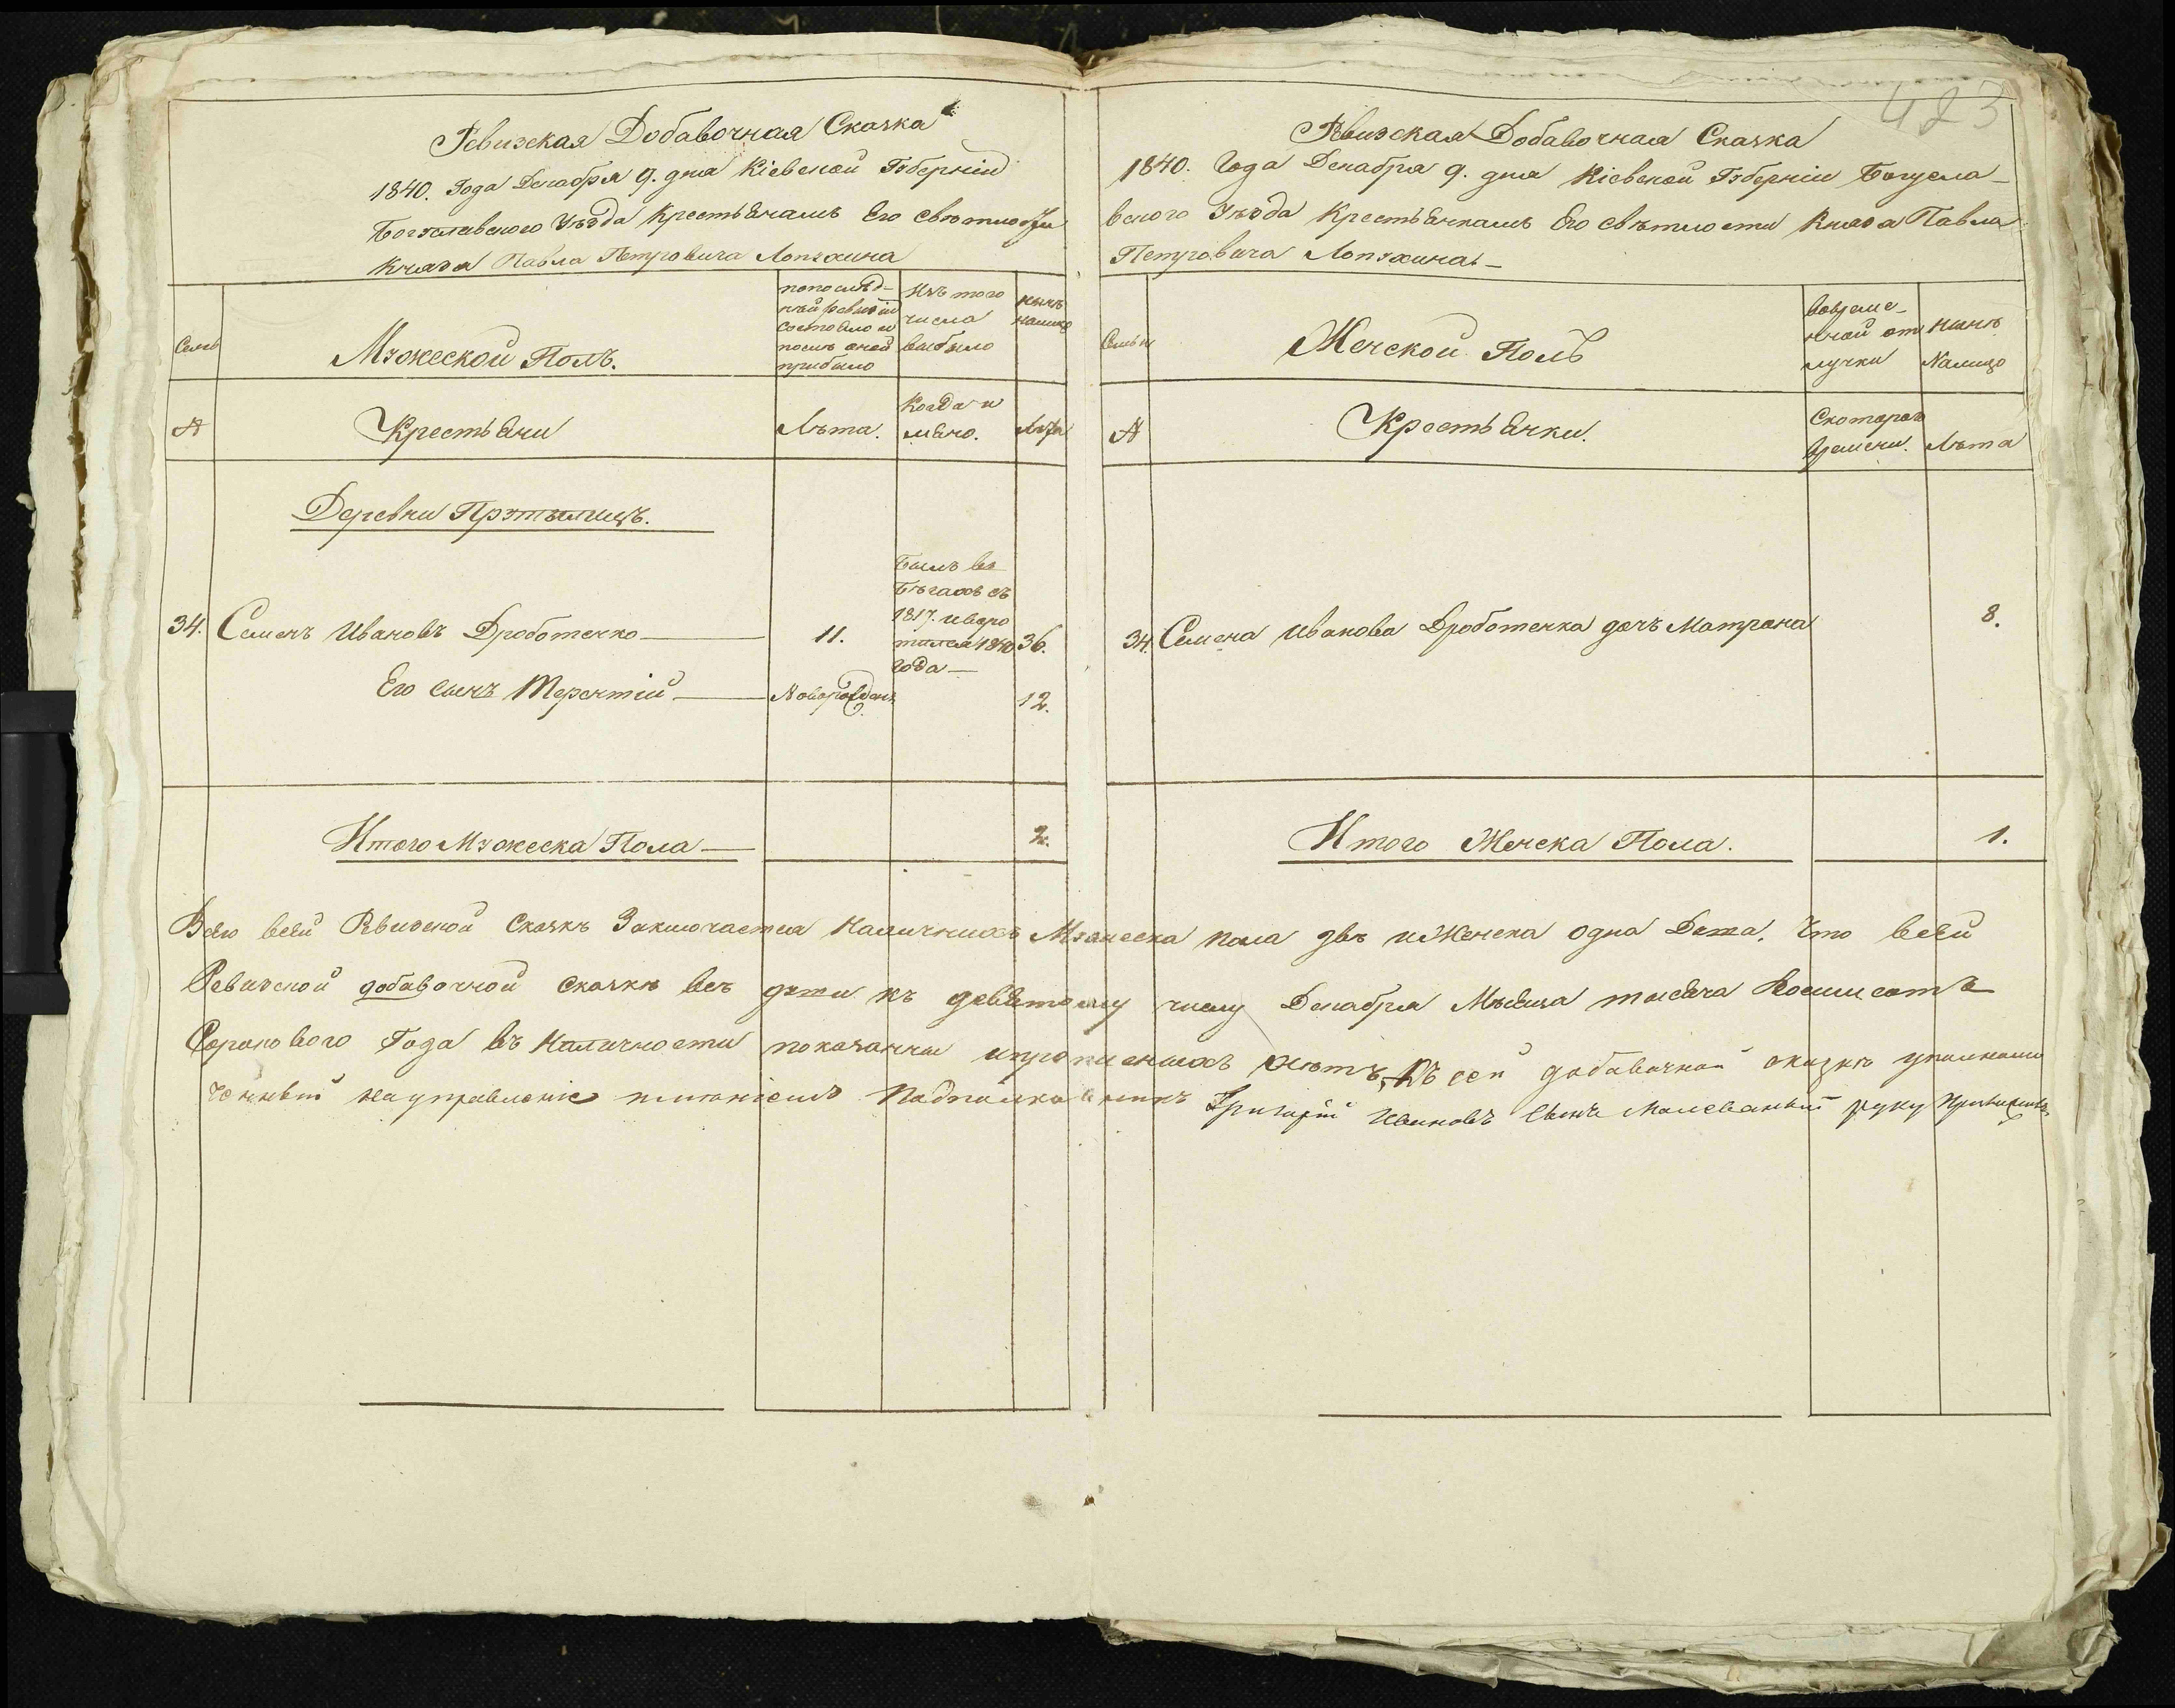 423
Ревизская Добавочная Сказка
1840. Года Декабря 9. дня Кіевской Гȣберніи
Богȣславского Уѣзда Крестьянамъ Его Свѣтлости
Князя Павла Петровича Лопȣхина
Семьи
Мȣжеской Полъ.
по послѣд-
ней ревизіи
состояло и
послѣ оной
прибыло
Изъ того
числа
выбыло
нынѣ
налицо
№
Крестьяни
Лѣта.
Когда и
мѣно.
Лѣта
Деревни Прȣтылецъ.
34. Семенъ Ивановъ Дроботенко
11.
Былъ въ
бѣгахъ съ
1817. и воро
тился 1840
года
36.
Его сынъ Терентій
Новорожден.
12.
Итого Мȣжеска Пола
2.
Ревизская Добавочная Сказка
1840. Года Декабря 9. дня Кіевской Гȣберніи Богусла-
вского Уѣзда Крестьянкамъ Его Свѣтлости Князя Павла
Петровича Лопȣхина
Семьи
Женской Полъ
вовреме-
нной от
лучки
Нынѣ
Налицо
№
Крестьянки.
Скоторого
времени.
Лѣта
34. Семена Иванова Дроботенка дочъ Матрона
8.
Итого Женска Пола.
1.
Всего всей Рвизской Сказкѣ Заключается Наличнихъ Мȣжеска пола двѣ и Женска одна Дȣша, Что всей
Ревизской добавочной сказкѣ всѣ дȣши къ девятому числу Декабря Мѣсяца тысяча Восимсотъ
Сорокового Года въ Наличности показанны и прописныхъ нѣтъ, Къ сей добавочной сказкѣ уполномо
ченный на управленіе имѣніемъ Подполковникъ Григорій Ивановъ Сынъ Малеваный руку приложилъ